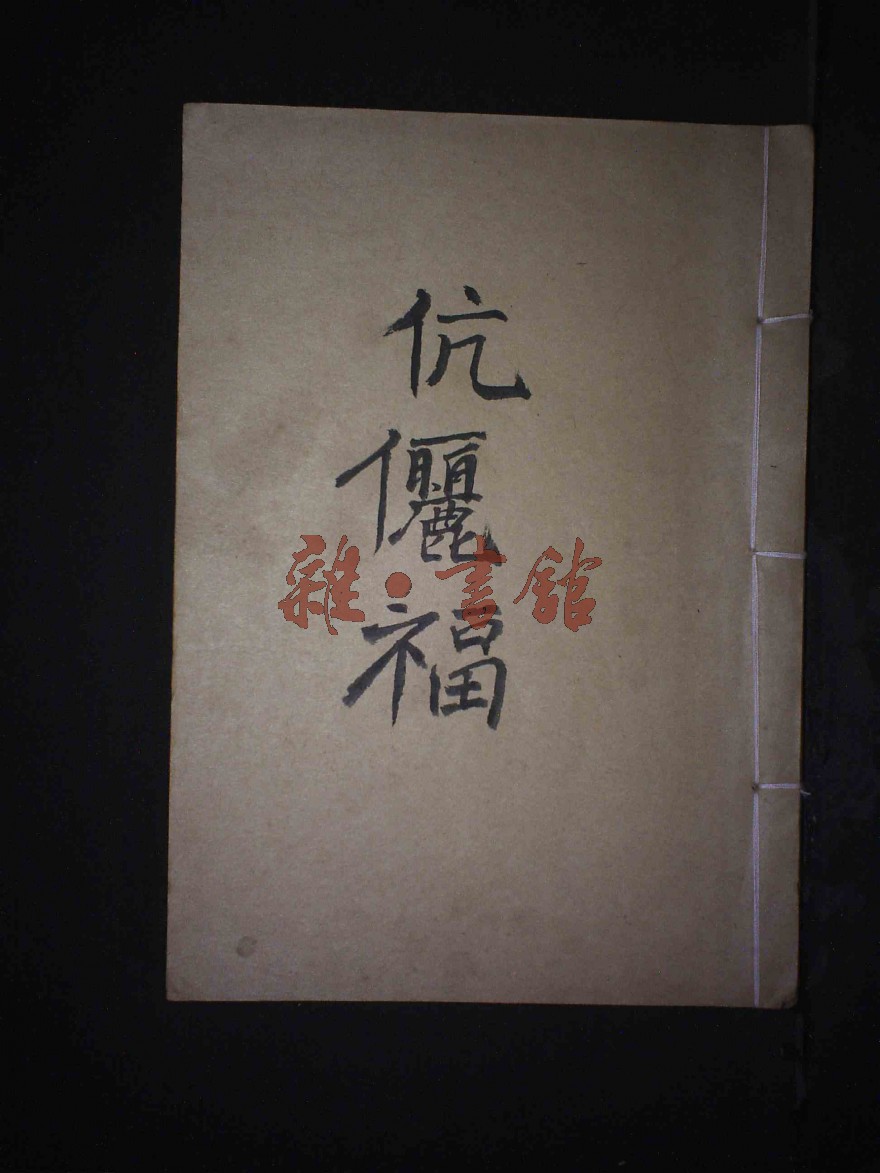 伉儷福
雜·書館